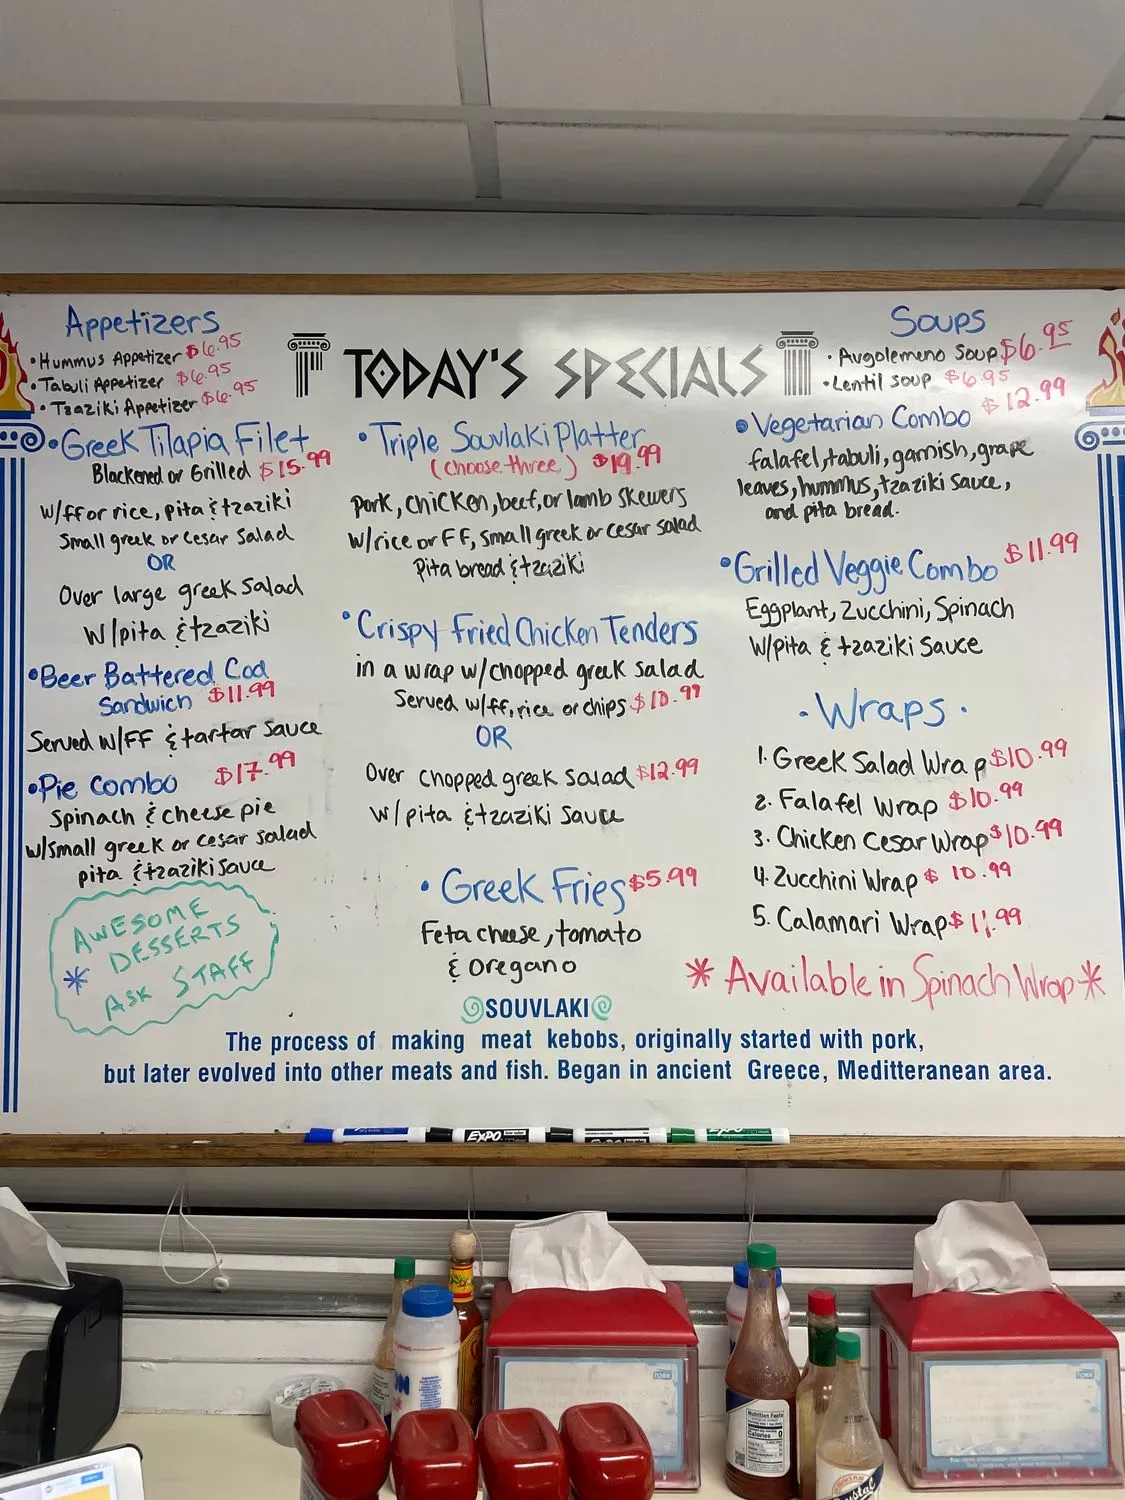 TODAY'S SPECIALS
Appetizers
• Hummus Appetizer $6.95
• Tabuli Appetizer $6.95
• Tzaziki Appetizer $6.95
• Greek Tilapia Filet
Blackened or Grilled $15.99
w/ff or rice, pita & tzaziki
Small greek or cesar salad
OR
Over large greek salad
w/pita & tzaziki
• Beer Battered Cod
Sandwich $11.99
Served w/FF & tartar sauce
• Pie Combo $17.99
Spinach & cheese pie
w/small greek or cesar salad
pita & tzaziki sauce
AWESOME
DESSERTS
* ASK STAFF
• Triple Souvlaki Platter
(choose three) $19.99
Pork, chicken, beef, or lamb skewers
w/rice or FF, small greek or cesar salad
Pita bread & tzaziki
• Crispy Fried Chicken Tenders
in a wrap w/chopped greek salad
Served w/ff, rice or chips $10.99
OR
Over chopped greek salad $12.99
w/pita & tzaziki sauce
• Greek Fries $5.99
Feta cheese, tomato
& oregano
Soups
• Avgolemeno Soup $6.95
• Lentil soup $6.95
• Vegetarian Combo $12.99
falafel, tabuli, garnish, grape
leaves, hummus, tzaziki sauce,
and pita bread.
• Grilled Veggie Combo $11.99
Eggplant, Zucchini, Spinach
w/pita & tzaziki sauce
· Wraps ·
1. Greek Salad Wrap $10.99
2. Falafel Wrap $10.99
3. Chicken Cesar Wrap $10.99
4. Zucchini Wrap $10.99
5. Calamari Wrap $11.99
* Available in Spinach Wrap *
SOUVLAKI
The process of making meat kebobs, originally started with pork,
but later evolved into other meats and fish. Began in ancient Greece, Meditteranean area.
EXPO
EXPO
TORK
TORK
Nutrition Facts
Calories 0